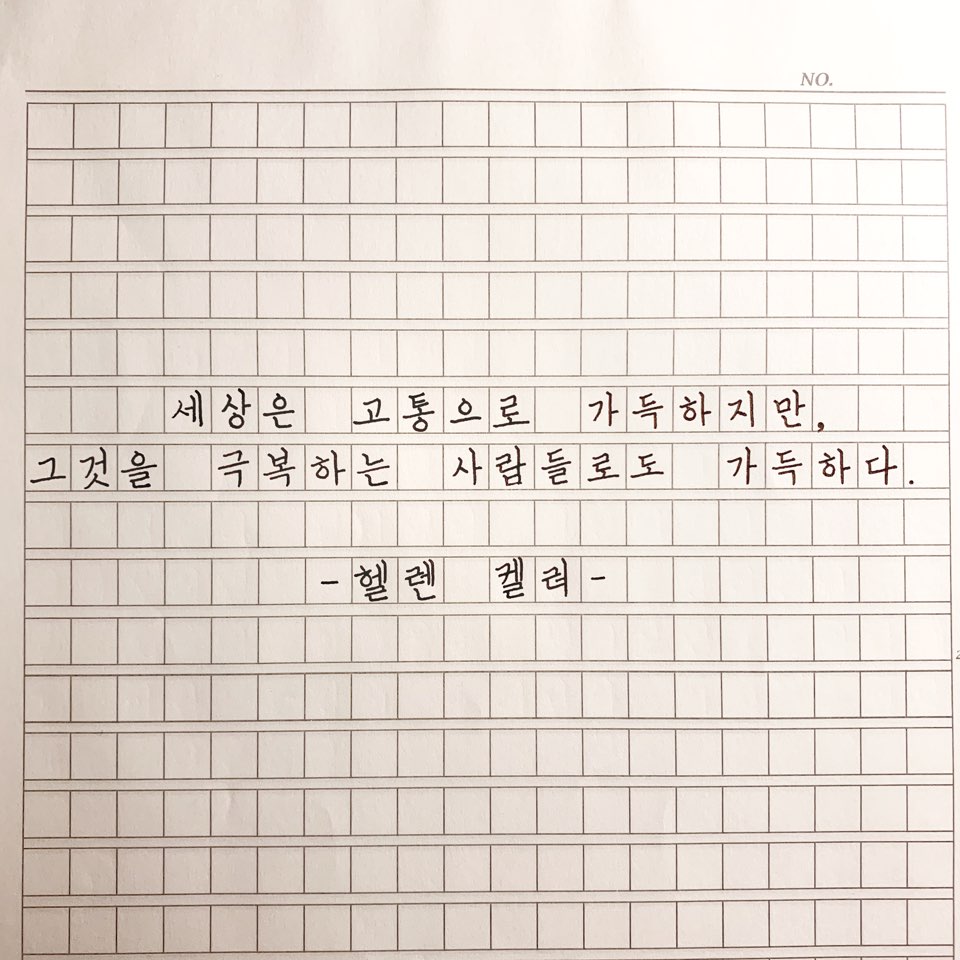 NO.
세상은 고통으로 가득하지만,
그것을 극복하는 사람들로도 가득하다.
-헬렌 켈러-